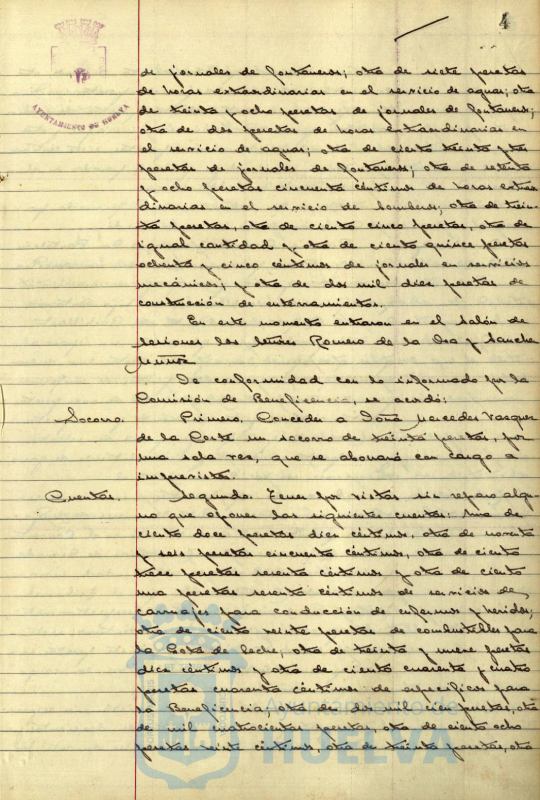 4
AYUNTAMIENTO DE HUELVA
de jornales de fontaneros; otra de siete pesetas
de horas extraordinarias en el servicio de aguas; otra
de treinta y ocho pesetas de jornales de fontaneros;
otra de dos pesetas de horas extraordinarias en
el servicio de aguas; otra de ciento treinta y tres
pesetas de jornales de fontaneros; otra de setenta
y ocho pesetas cincuenta céntimos de horas extraor-
dinarias en el servicio de bomberos; otra de trein-
ta pesetas, otra de ciento cinco pesetas, otra de
igual cantidad y otra de ciento quince pesetas
ochenta y cinco céntimos de jornales en servicios
mecánicos; y otra de dos mil diez pesetas de
construcción de enterramientos.
En este momento entraron en el Salón de
sesiones los señores Romero de la Osa y Sánchez
Muñoz.
De conformidad con lo informado por la
Comisión de Beneficencia, se acordó:
Socorro. Primero. Conceder a Doña Mercedes Vázquez
de la Corte un socorro de treinta pesetas, por
una sola vez, que se abonará con cargo a
imprevistos.
Cuentas. Segundo. Tener por vistas sin reparo algu-
no que oponer las siguientes cuentas: Una de
ciento doce pesetas diez céntimos, otra de noventa
y seis pesetas cincuenta céntimos, otra de ciento
trece pesetas sesenta céntimos y otra de ciento
una pesetas sesenta céntimos de servicios de
carruajes para conducción de enfermos y heridos;
otra de ciento veinte pesetas de combustibles para
la Gota de leche; otra de treinta y nueve pesetas
diez céntimos y otra de ciento cuarenta y cuatro
pesetas cuarenta céntimos de específicos para
la Beneficencia; otra de dos mil cien pesetas, otra
de mil cuatrocientas pesetas, otra de ciento ocho
pesetas veinte céntimos, otra de treinta pesetas, otra
Ayuntamiento de
HUELVA